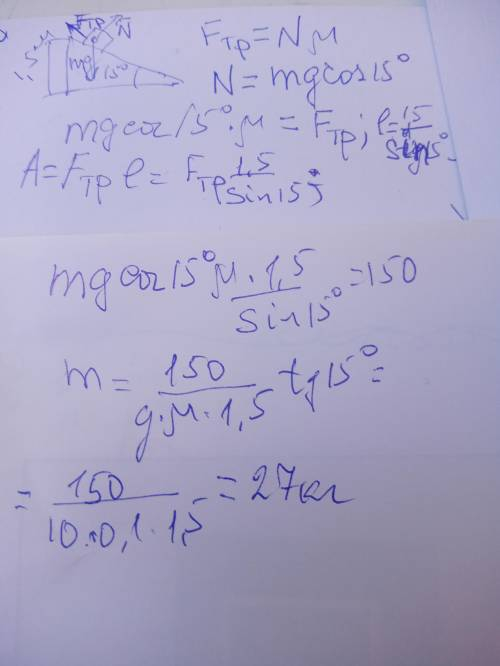 Fтр N
1,5 м mg 15°
Fтр = Nμ
N = mg cos 15°
mg cos 15° · μ = Fтр; l = 1,5 / sin 15°
A = Fтр l = Fтр 1,5 / sin 15°;
mg cos 15° μ · 1,5 / sin 15° = 150
m = 150 / g·μ·1,5 tg 15° =
= 150 / 10·0,1·1,5 = 27кг